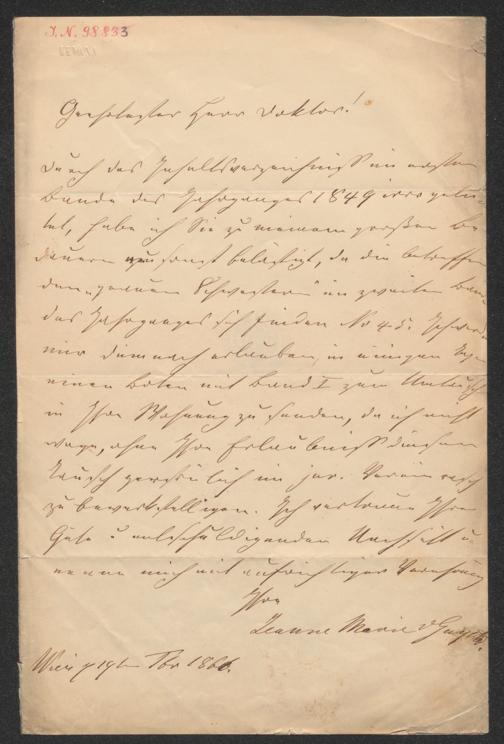 I. N. 98833
Geehrtester Herr Doktor!
Durch das Inhaltsverzeichniß im ersten
Bande des Jahrganges 1849 irre gelei-
tet, habe ich Sie zu meinem großen Be
dauern umsonst belästigt, da die betreffen
den „grauen Schwestern" im zweiten Bande
des Jahrganges sich finden No 45. Ich werde
mir demnach erlauben, in einigen Tagen
einen Boten mit Band I zum Umtausch
in Ihre Wohnung zu senden, da ich nicht
wage, ohne Ihre Erlaubniß diesen
Tausch persönlich im jur. Verein rasch
zu bewerkstelligen. Ich vertraue Ihrer
Güte u entschuldigenden Nachsicht u
nenne mich mit aufrichtiger Verehrung
Ihre
Jeanne Marie
Wien 19ten 1866.